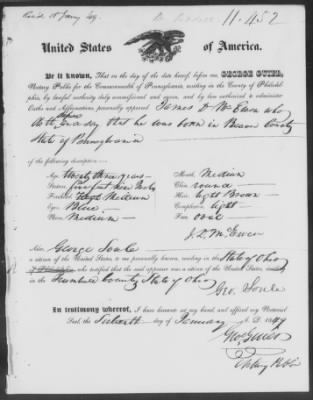 Rec'd 15 Jany 49.
11.452
United States of America.
Be it known, That on the day of the date hereof, before me, GEORGE GUIER,
Notary Public for the Commonwealth of Pennsylvania, residing in the County of Philadel
phia, by lawful authority duly commissioned and sworn, and by law authorized to administer
Oaths and Affirmations, personally appeared James D McEwen who
doth say that he was born in Beaver County
State of Pennsylvania
of the following description—
Age, twenty three years Mouth, Medium
Stature, five feet nine inches Chin, round
Forehead, Medium Hair, light Brown
Eyes, Blue Complexion, light
Nose, Medium Face, oval
J. D. McEwen
Also, George Soule
a citizen of the United States, to me personally known, residing in the State of Ohio
who testified that the said appearer was a citizen of the United States,
Trumbull County State of Ohio
Geo. Soule
In testimony whereof, I have hereunto set my hand, and affixed my Notarial
Seal, the day of January A. D. 1849
Geo Guier
Notary Public